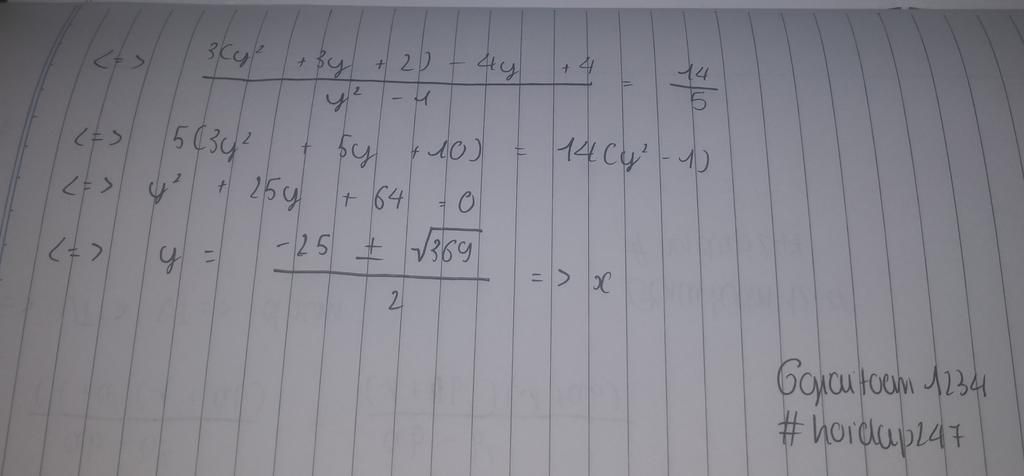 <=> 3(y² + 3y + 2) - 4y + 4 / y² - 1 = 14/5
<=> 5(3y² + 5y + 10) = 14(y² - 1)
<=> y² + 25y + 64 = 0
<=> y = -25 ± √369 / 2 => x
1234
#hoidap247